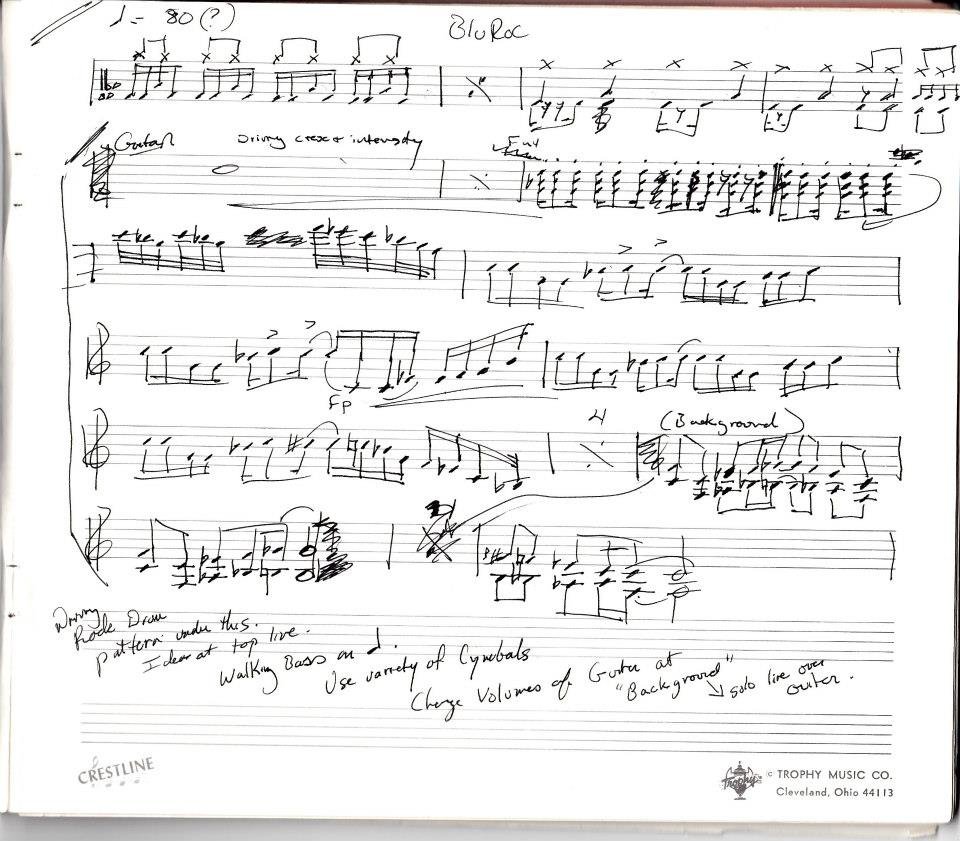 ♩ = 80 (?)
BluRoc
BD
Guitar
Driving cresc + intensity
Fp
4
(Background)
Driving
Rock Drum
pattern under this.
Idea at top live.
Walking Bass on ♩.
Use variety of Cymbals
Change Volumes of Guitar at
"Background"
↘ solo line over
Guitar.
CRESTLINE
Trophy
© TROPHY MUSIC CO.
Cleveland, Ohio 44113